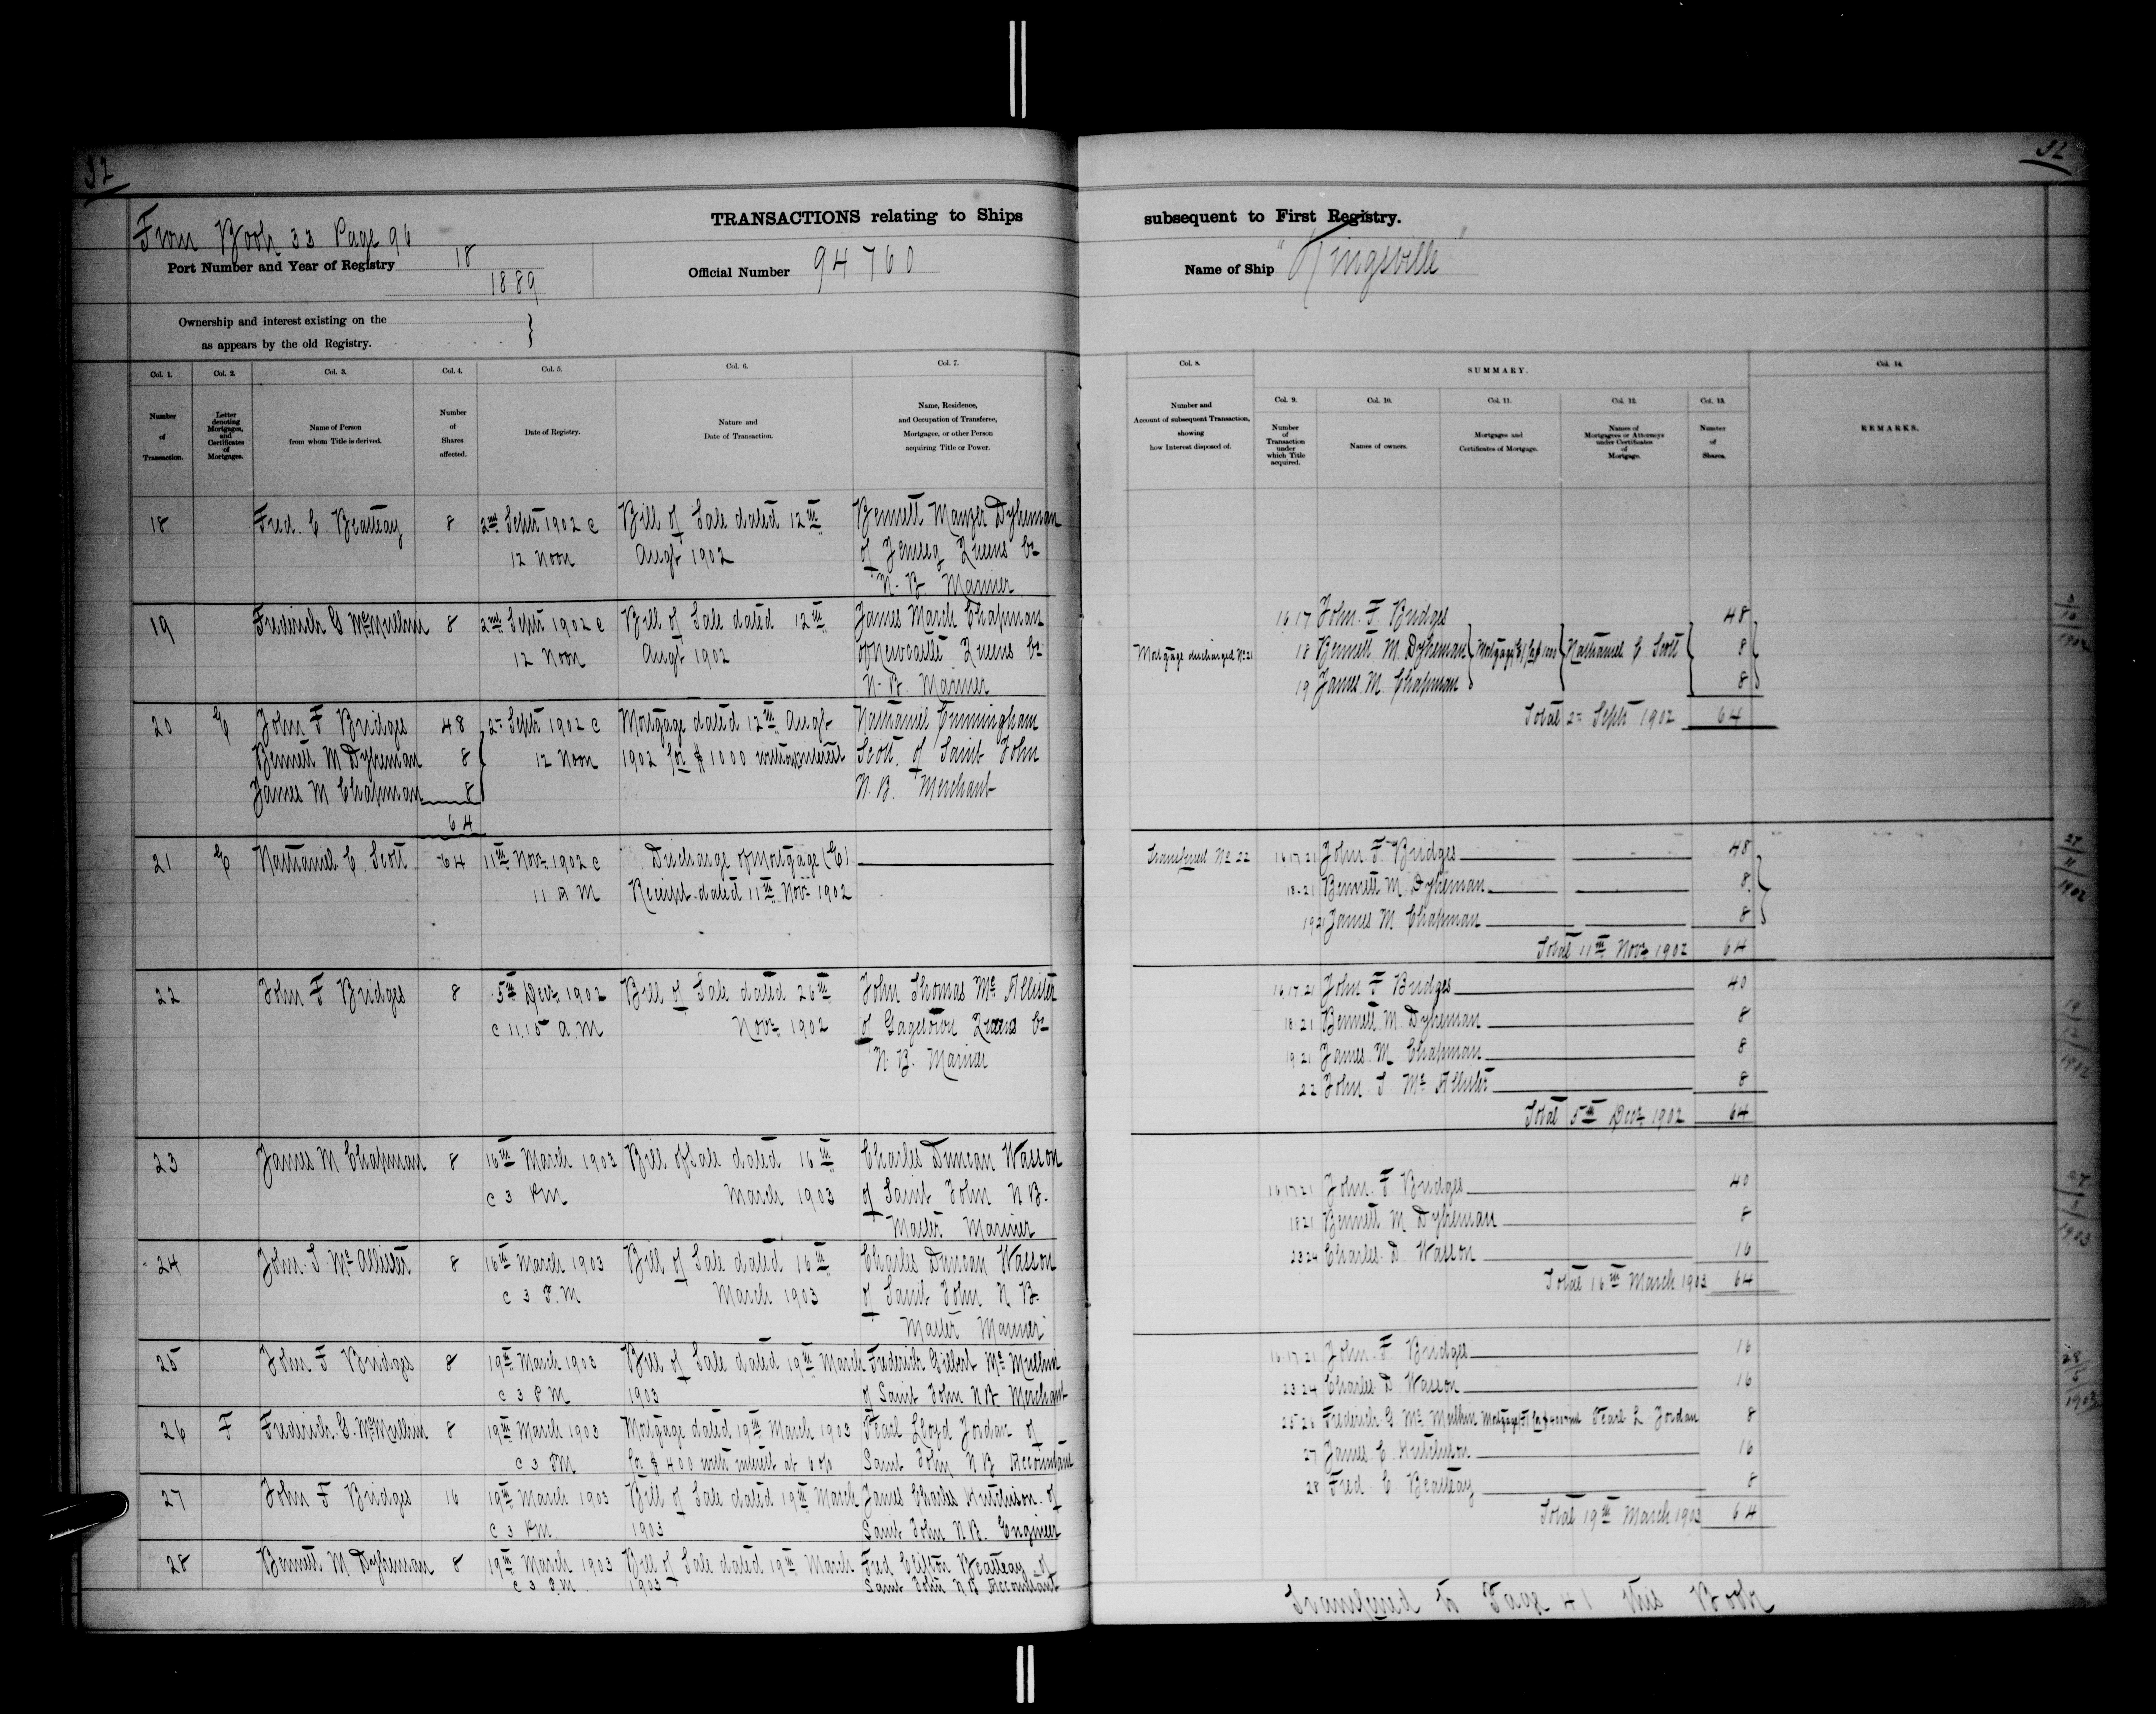 32
32
From Book 33 Page 96
TRANSACTIONS relating to Ships
subsequent to First Registry.
Port Number and Year of Registry 18
1889
Official Number 94760
Name of Ship "Kingsville"
Ownership and interest existing on the
as appears by the old Registry.
Col. 1. Number of Transaction.
Col. 2. Letter denoting Mortgages, and Certificates of Mortgages.
Col. 3. Name of Person from whom Title is derived.
Col. 4. Number of Shares affected.
Col. 5. Date of Registry.
Col. 6. Nature and Date of Transaction.
Col. 7. Name, Residence, and Occupation of Transferee, Mortgagee, or other Person acquiring Title or Power.
Col. 8. Number and Account of subsequent Transaction, showing how Interest disposed of.
SUMMARY.
Col. 9. Number of Transaction under which Title acquired.
Col. 10. Names of owners.
Col. 11. Mortgages and Certificates of Mortgage.
Col. 12. Names of Mortgagees or Attorneys under Certificates of Mortgage.
Col. 13. Number of Shares.
Col. 14. REMARKS.
18 Fred. C. Beatteay 8 2nd Septr 1902 @ Bill of Sale dated 12th Bennett Manzer Dykeman
12 Noon Augt 1902 of Jemseg Queens Co
N. B. Mariner
19 Frederick G McMullin 8 2nd Septr 1902 @ Bill of Sale dated 12th James March Chapman
12 Noon Augt 1902 of Newcastle Queens Co
N. B. Mariner
20 E John F Bridges 48 2nd Septr 1902 @ Mortgage dated 12th Augt Nathaniel Cunningham
Bennett M Dykeman 8 12 Noon 1902 for $1000 without interest Scott of Saint John
James M Chapman 8 N. B. Merchant
64
21 E Nathaniel C. Scott 64 11th Novr 1902 @ Discharge of Mortgage (E)
11 A M Receipt dated 11th Novr 1902
22 John F Bridges 8 5th Decr 1902 Bill of Sale dated 26th John Thomas McAllister
@ 11.15 a.m Novr 1902 of Gagetown Queens Co
N. B. Mariner
23 James M Chapman 8 16th March 1903 Bill of Sale dated 16th Charles Duncan Wasson
@ 3 PM March 1903 of Saint John N B.
Master Mariner
24 John T McAllister 8 16th March 1903 Bill of Sale dated 16th Charles Duncan Wasson
@ 3 P.M March 1903 of Saint John N B.
Master Mariner
25 John F Bridges 8 19th March 1903 Bill of Sale dated 19th March Frederick Gilbert McMullin
@ 3 P M 1903 of Saint John N B Merchant
26 F Frederick G. McMullin 8 19th March 1903 Mortgage dated 19th March 1903 Pearl Lloyd Jordan of
@ 3 PM for $400 with interest at 6 o/o Saint John N B Accountant
27 John F Bridges 16 19th March 1903 Bill of Sale dated 19th March James Charles Hutchison of
@ 3 PM. 1903 Saint John N.B. Engineer
28 Bennett M Dykeman 8 19th March 1903 Bill of Sale dated 19th March Fred Clifton Beatteay of
@ 3 P.M. 1903 Saint John N.B Accountant
16 17 John. F Bridges 48
Mortgage discharged No 21 18 Bennett M. Dykeman Mortgage (E) for $1000 Nathaniel C. Scott 8
19 James M. Chapman 8
Total 2nd Septr 1902 64
10
1902
Transferred No 22 16 17 21 John F Bridges 48
18-21 Bennett M. Dykeman 8
19 21 James M Chapman 8
Total 11th Novr 1902 64
27
11
1902
16.17.21 John F Bridges 40
18.21 Bennett M. Dykeman 8
19.21 James M Chapman 8
22 John T McAllister 8
Total 5th Decr 1902 64
12
1902
16 17 21 John F. Bridges 40
18 21 Bennett M Dykeman 8
23 24 Charles D. Wasson 16
Total 16th March 1903 64
27
1903
16.17.21 John F Bridges 16
23 24 Charles D Wasson 16
25 26 Frederick G McMullin Mortgage (F) for $400 Pearl L Jordan 8
27 James C Hutchison 16
28 Fred C Beatteay 8
Total 19th March 1903 64
28
5
1903
Transferred to Page 41 this Book